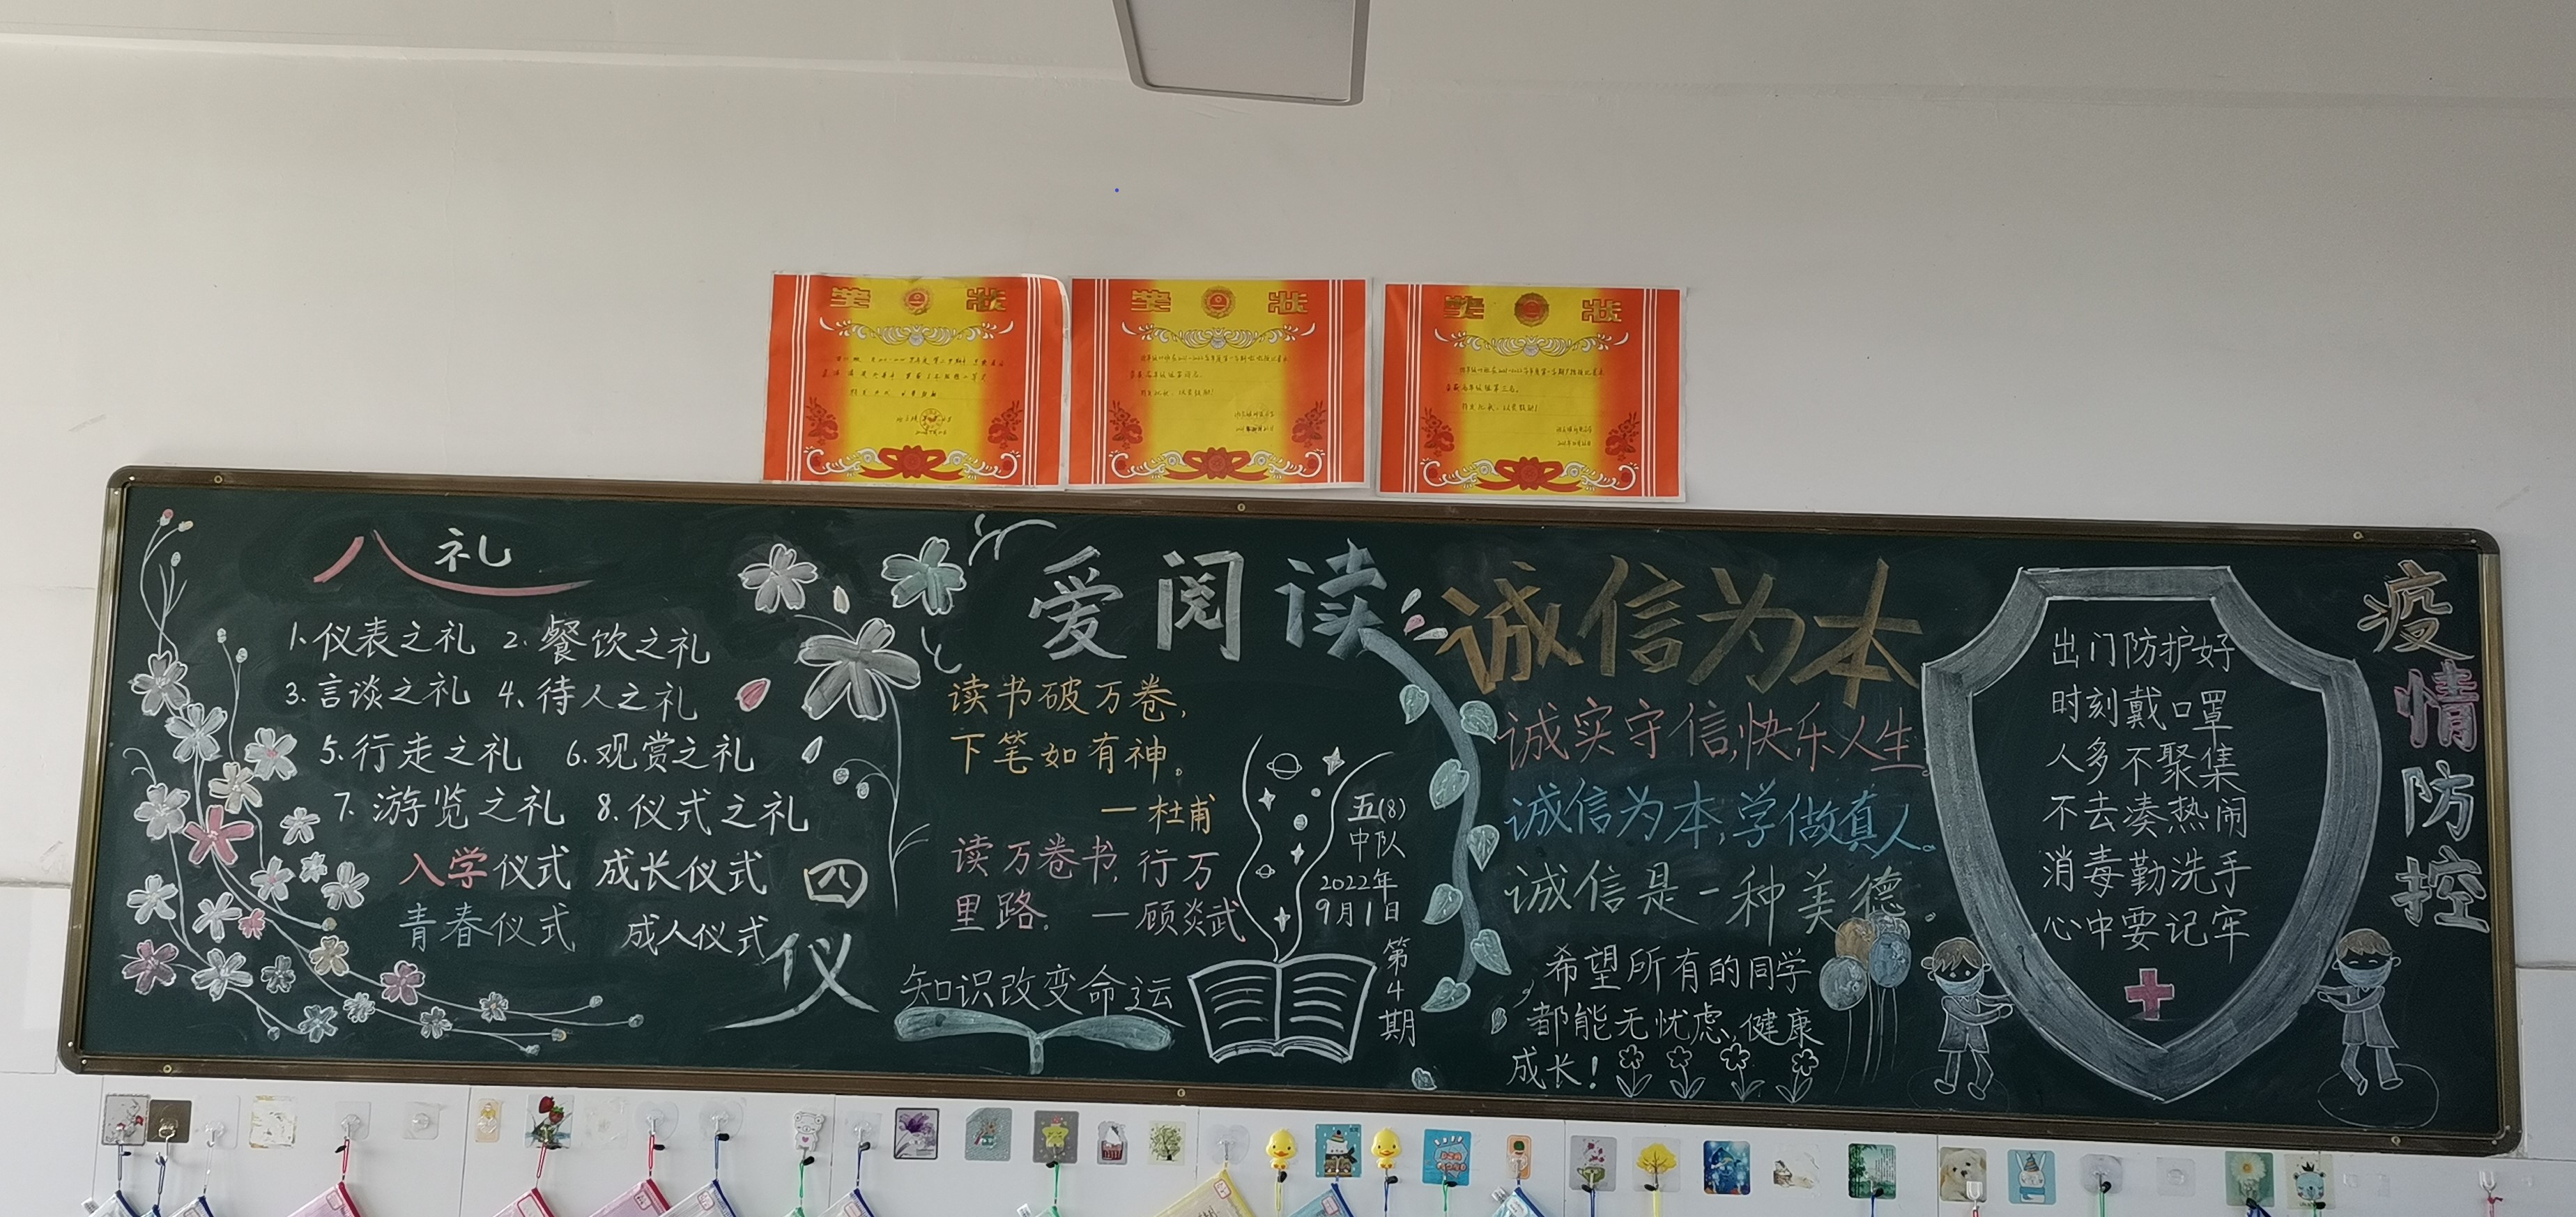 奖状
奖状
奖状
八礼
1.仪表之礼 2.餐饮之礼
3.言谈之礼 4.待人之礼
5.行走之礼 6.观赏之礼
7.游览之礼 8.仪式之礼
入学仪式 成长仪式
青春仪式 成人仪式
四仪
爱阅读
读书破万卷,
下笔如有神。
—杜甫
读万卷书,行万
里路。—顾炎武
知识改变命运
五(8)
中队
2022年
9月1日
第4期
诚信为本
诚实守信,快乐人生。
诚信为本,学做真人。
诚信是一种美德。
希望所有的同学
都能无忧虑,健康
成长!
疫情防控
出门防护好
时刻戴口罩
人多不聚集
不去凑热闹
消毒勤洗手
心中要记牢